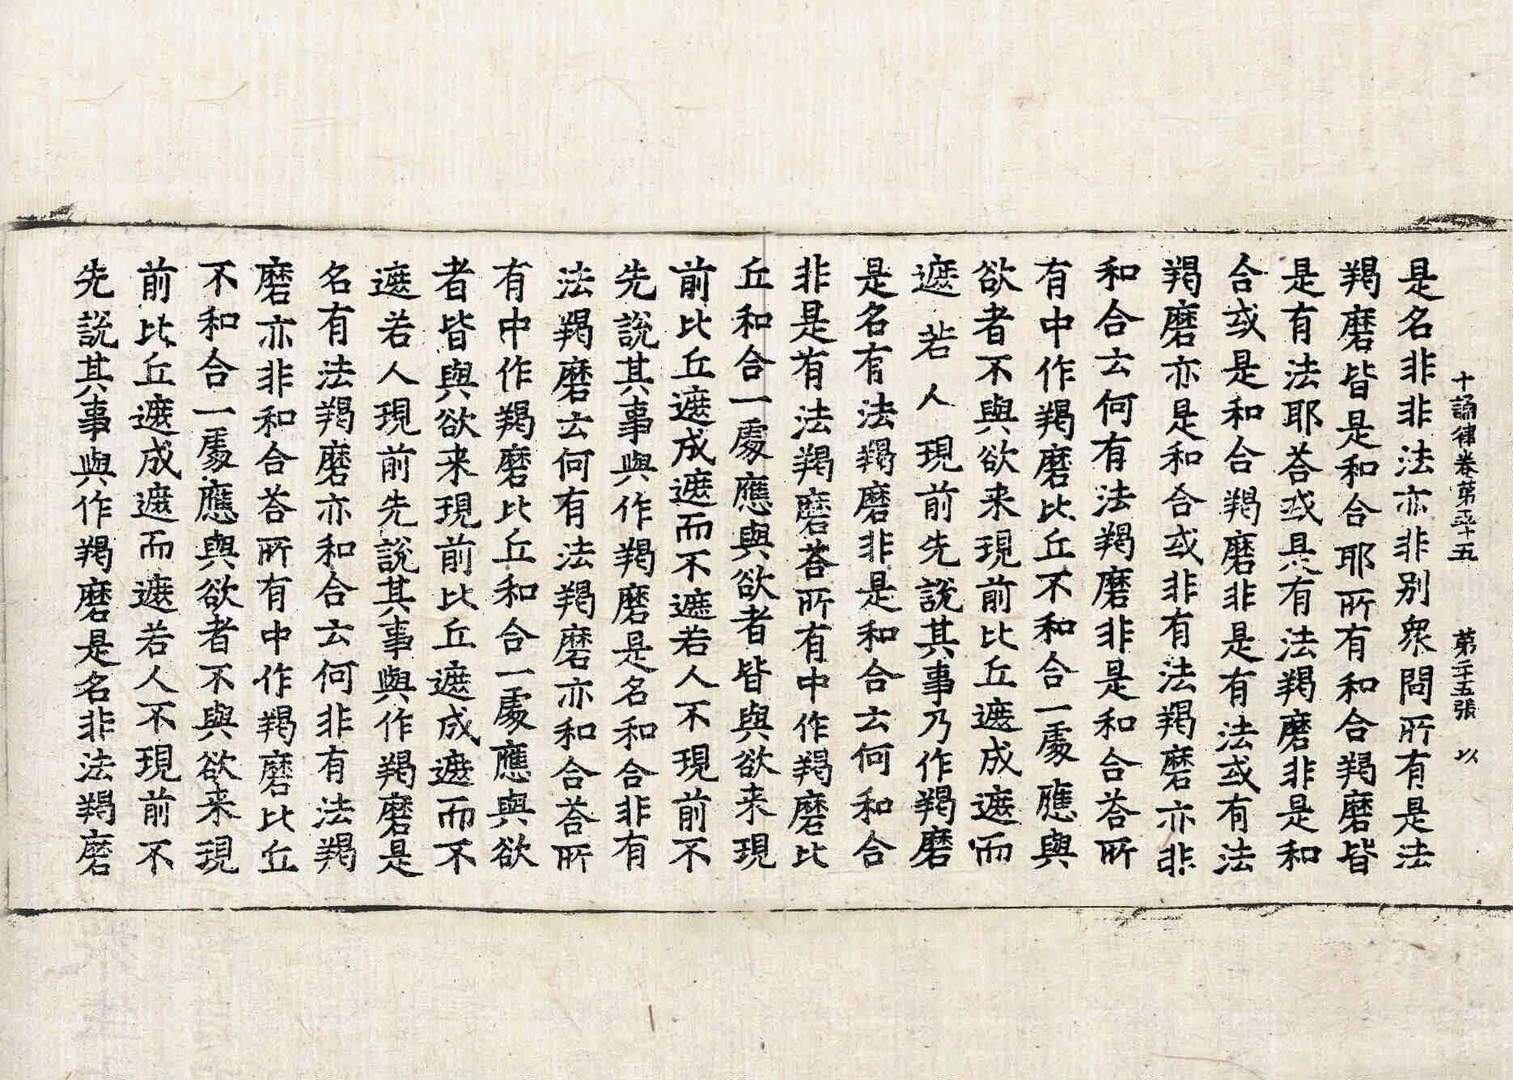 十誦律卷苐五十五 苐二十五張 以
是名非非法亦非别衆問所有是法
羯磨皆是和合耶所有和合羯磨皆
是有法耶荅或是有法羯磨非是和
合或是和合羯磨非是有法或有法
羯磨亦是和合或非有法羯磨亦非
和合云何有法羯磨非是和合荅所
有中作羯磨比丘不和合一處應與
欲者不與欲来現前比丘遮成遮而
遮若人現前先說其事乃作羯磨
是名有法羯磨非是和合云何和合
非是有法羯磨荅所有中作羯磨比
丘和合一處應與欲者皆與欲来現
前比丘遮成遮而不遮若人不現前不
先說其事與作羯磨是名和合非有
法羯磨云何有法羯磨亦和合荅所
有中作羯磨比丘和合一處應與欲
者皆與欲来現前比丘遮成遮而不
遮若人現前先說其事與作羯磨是
名有法羯磨亦和合云何非有法羯
磨亦非和合荅所有中作羯磨比丘
不和合一處應與欲者不與欲来現
前比丘遮成遮而遮若人不現前不
先說其事與作羯磨是名非法羯磨